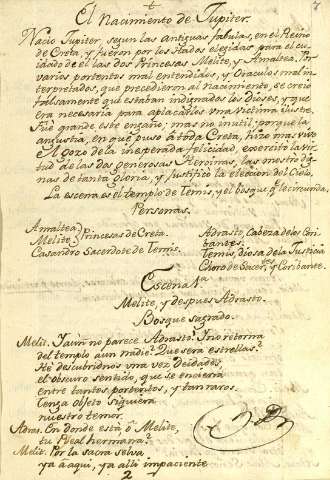 El Nacimiento de Jupiter.
Nacio Jupiter, segun las Antiguas fabulas, en el Reino
de Creta, y fueron por los Hados elegidas para el cui
dado de el las dos Princesas Melite, y Amaltea. Por
varios portentos mal entendidos, y Oraculos mal in
terpretados, que precedieron al Nacimiento, se creió
falsamente que estaban indignados los dioses, y que
era necesaria para aplacarlos una victima ilustre.
Fué grande este engaño; mas no inutil, porque la
angustia, en que puso a toda Creta, hizo mas vivo
el gozo de la inesperada felicidad, exercitó la vir
tud de las dos generosas Heroinas, las mostró dig
nas de tanta gloria, y justificó la eleccion del Cielo.
La escena es el templo de Temis, y el bosque q. le circunda.
Personas.
Amaltea
Melite Princesas de Creta.
Casandro Sacerdote de Temis.
Adrasto, Cabeza de los Cori
bantes.
Temis, diosa de la Justicia
Choro de Sacer.tes y Coribante.
Escena 1a
Melite, y despues Adrasto.
Bosque sagrado.
Melit. I aun no parece Adrasto? I no retorna
del templo aun nadie? Que sera estrellas?
He descubridnos una vez deidades,
el obscuro sentido, que se encierra
entre tantos portentos, y tan raros.
Tenga objeto siquiera
nuestro temor.
Adras. En donde está ò Melite,
tu Real hermana?
Melit. Por la sacra selva,
ya a aqui, ya alli impaciente
2